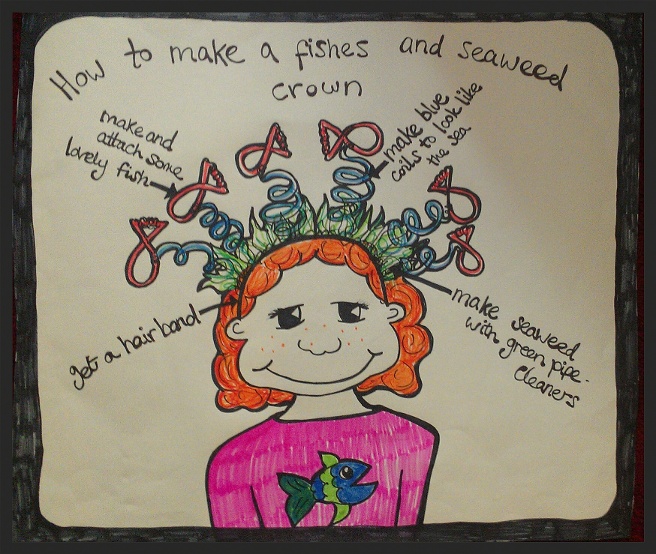 How to make a fishes and seaweed
crown
make and
attach some
lovely fish
make blue
coils to look like
the sea
get a hair band
make seaweed
with green pipe-
cleaners